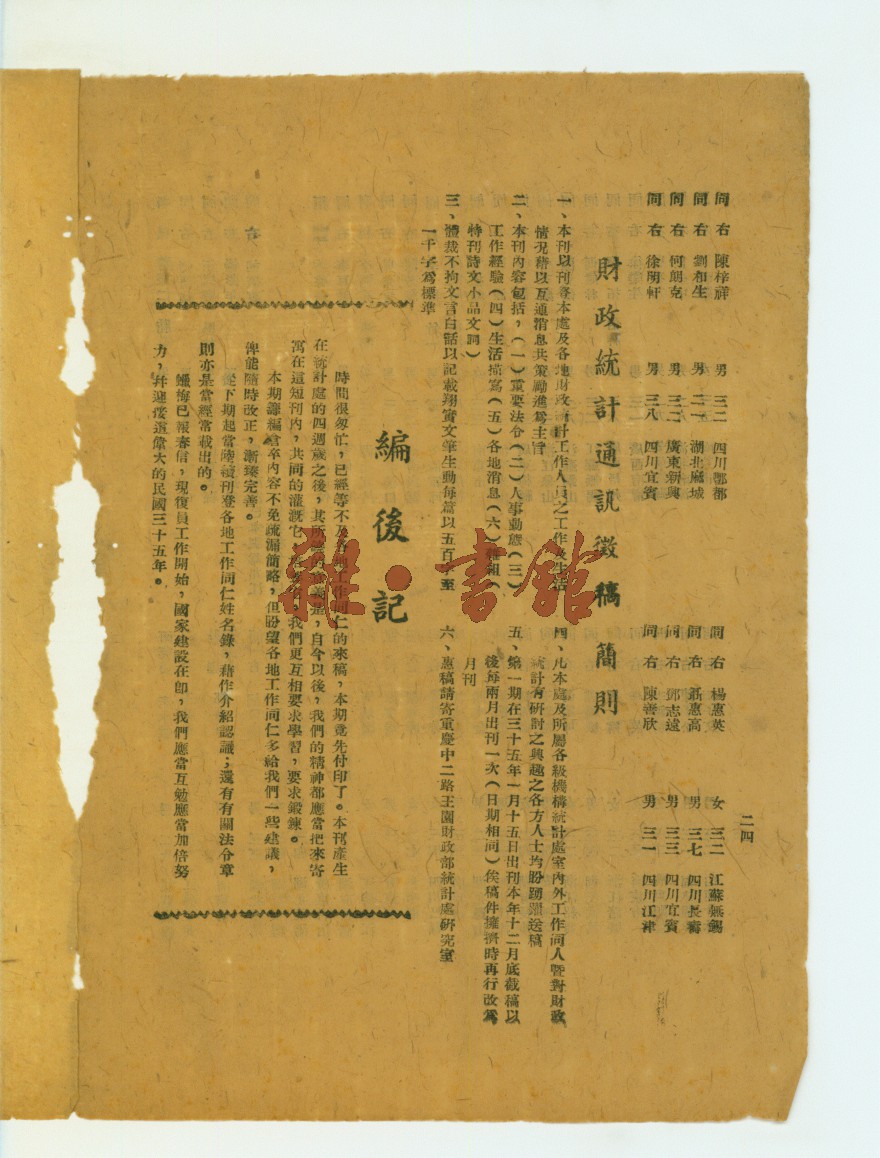 二四
同右 陳梓祥 男 三二 四川酆都
同右 劉和生 男 二一 湖北麻城
同右 何朗克 男 三二 廣東新興
同右 徐朗軒 男 三八 四川宜賓
同右 楊惠英 女 三二 江蘇無錫
同右 聶惠高 男 三七 四川長壽
同右 鄧志遠 男 三三 四川宜賓
同右 陳善欣 男 三一 四川江津
財政統計通訊徵稿簡則
一、本刊以刊登本處及各地財政統計工作人員之工作及生活
情况藉以互通消息共策勵進爲主旨
二、本刊內容包括,(一)重要法令(二)人事動態(三)
工作經驗(四)生活描寫(五)各地消息(六)雜組(
特刊詩文小品文詞)
三、體裁不拘文言白話以記載翔實文筆生動每篇以五百
至
一千字爲標準
四、凡本處及所屬各級機構統計處室內外工作同人暨對財政
統計有研討之興趣之各方人士均盼踴躍送稿
五、第一期在三十五年一月十五日出刊本年十二月底截稿以
後每兩月出刊一次(日期相同)俟稿件擁擠時再行改爲
月刊
六、惠稿請寄重慶中二路王園財政部統計處研究室
編後記
時間很匆忙,已經等不及各地工作同仁的來稿,本期竟先付印了。本刊產生
在統計處的四週歲之後,其所 是,自今以後,我們的精神都應當把來寄
寓在這短刊內,共同的灌漑它, 我們更互相要求學習,要求鍛鍊。
本期謙編倉卒內容不免疏漏簡略,但盼望各地工作同仁多給我們一些建議,
俾能隨時改正,漸臻完善。
從下期起當陸續刊登各地工作同仁姓名錄,藉作介紹認識;還有有關法令章
則亦是當經常載出的。
蠟梅已報春信,現復員工作開始,國家建設在卽,我們應當互勉應當加倍努
力,幷迎接這偉大的民國三十五年。
雜·書館